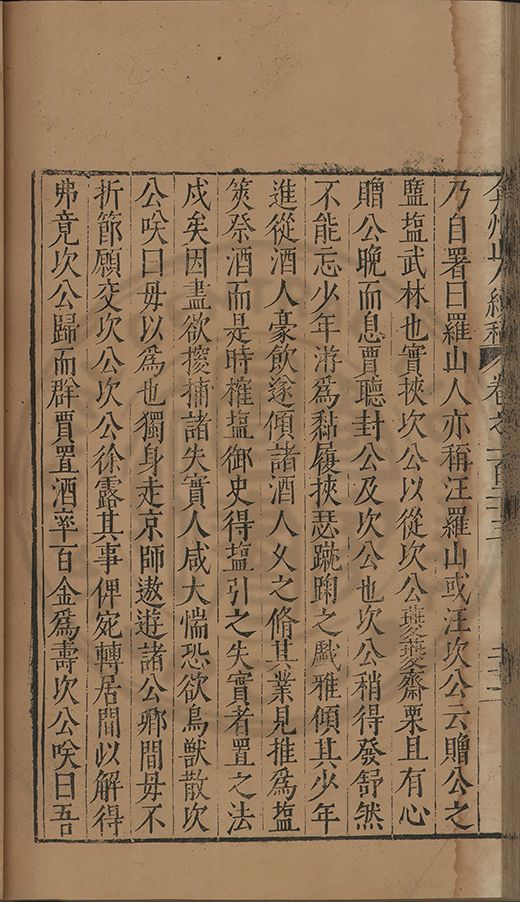 弇州山人續稿 卷之一百三十三
乃自署曰羅山人亦稱汪羅山或汪次公云贈公之
鹽塩武林也實挾次公以從次公夔夔齋栗且有心
贈公晚而息賈聽封公及次公也次公稍得發舒然
不能忘少年游為黏履挾瑟蹴踘之戲雅傾其少年
進從酒人豪飲遂傾諸酒人乂之脩其業見推為塩
筴祭酒而是時榷塩御史得塩引之失實者置之法
戍矣因盡欲按捕諸失實人咸大惴恐欲鳥獸散次
公咲曰毋以為也獨身走京師遨遊諸公卿間毋不
折節願交次公次公徐露其事俾宛轉居間以解得
弗竟次公歸而群賈置酒率百金為壽次公咲曰吾